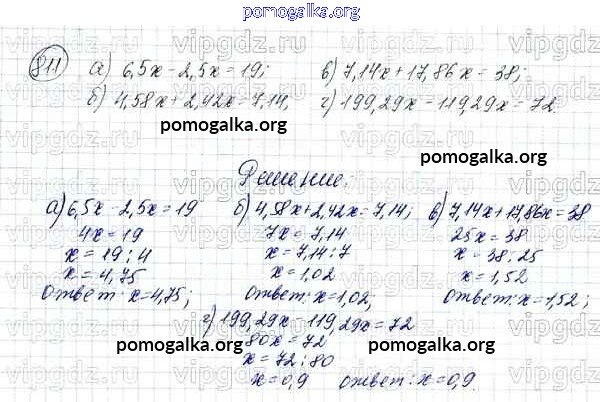 pomogalka.org
811 а) 6,5x - 2,5x = 19; в) 7,14x + 17,86x = 38;
б) 4,58x + 2,42x = 7,14, г) 199,29x - 119,29x = 72.
pomogalka.org
pomogalka.org
Решение.
а) 6,5x - 2,5x = 19 б) 4,58x + 2,42x = 7,14; в) 7,14x + 17,86x = 38
4x = 19 7x = 7,14 25x = 38
x = 19 : 4 x = 7,14 : 7 x = 38 : 25
x = 4,75 x = 1,02 x = 1,52
Ответ: x = 4,75; Ответ: x = 1,02, Ответ: x = 1,52;
г) 199,29x - 119,29x = 72
80x = 72
pomogalka.org
pomogalka.org
x = 72 : 80
x = 0,9 ответ: x = 0,9.
vipgdz.com